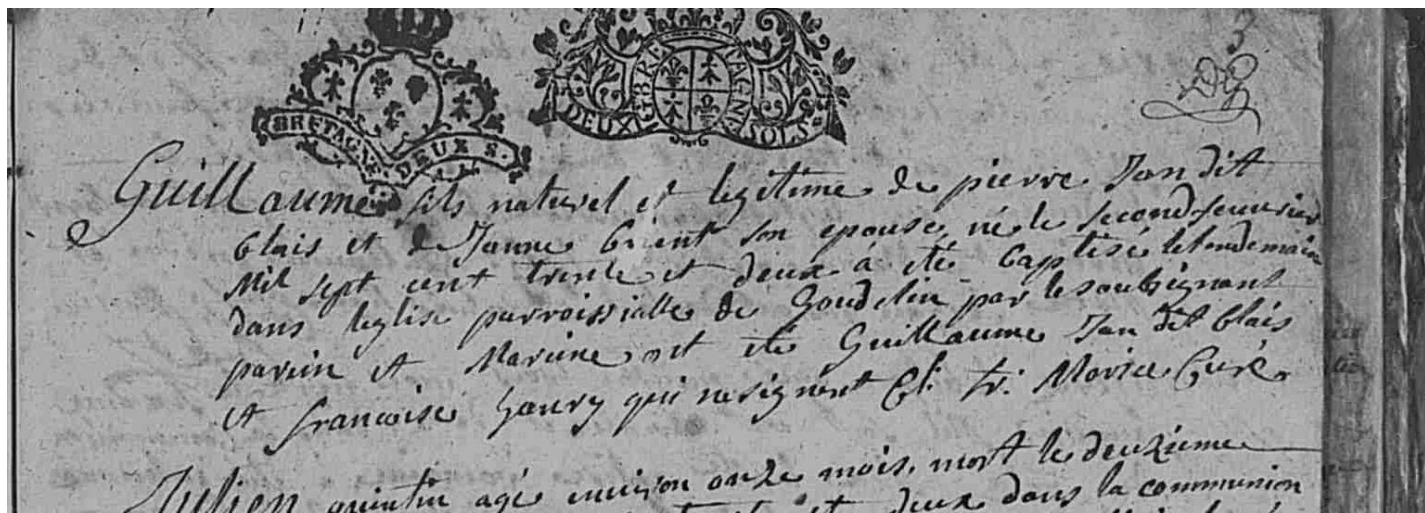 BRETAGNE. DEUX S.
BRETAGNE DEUX SOLS.
3
Guillaume fils naturel et legitime de pierre Jan dit
blais et de Janne brient son epouse, né le second feuvrier
Mil sept cent trente et deux à eté baptisé le lendemain
dans leglise parroissialle de Goudelin par le soubsignant
parein et Mareine ont eté Guillaume Jan dit blais
et francoise qui ne signent Morice Curé
Julien quintin agé environ onze mois, mort le deuxieme
et deux dans la communion